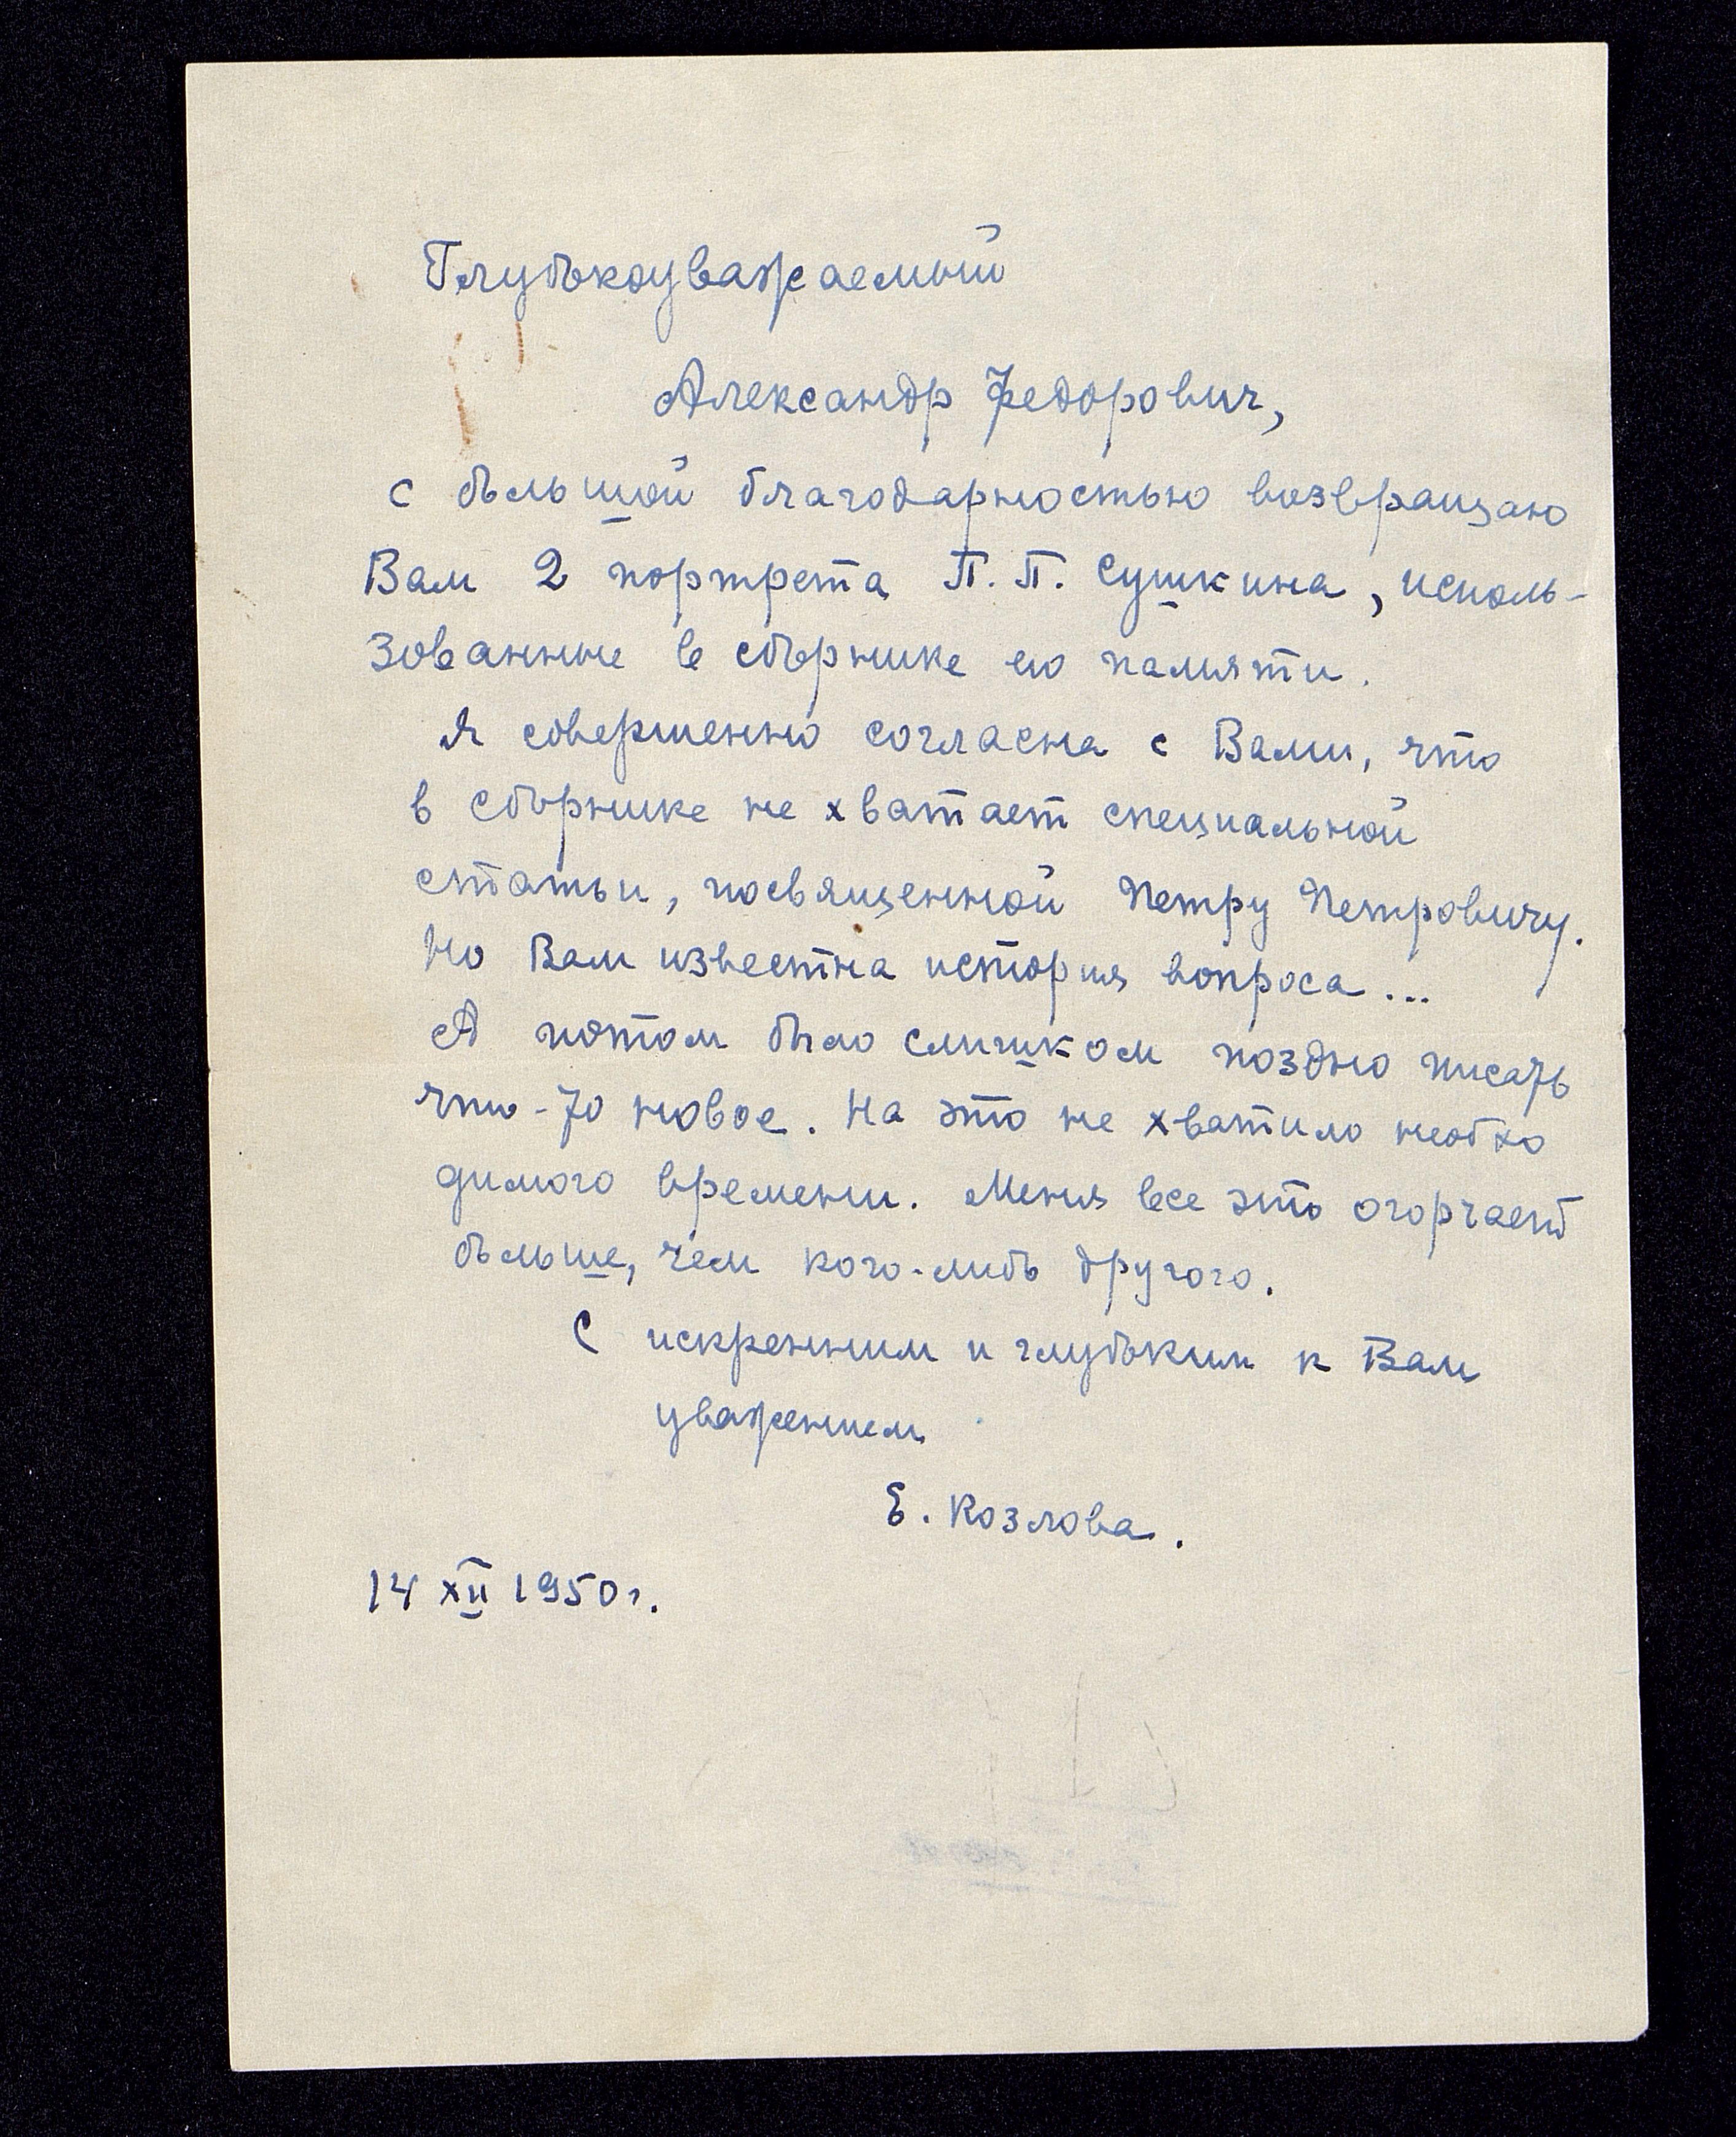 Глубокоуважаемый
Александр Федорович,
с большой благодарностью возвращаю
Вам 2 портрета П. П. Сушкина, исполь-
зованные в сборнике его памяти.
Я совершенно согласна с Вами, что
в сборнике не хватает специальной
статьи, посвященной Петру Петровичу.
Но Вам известна история вопроса...
А потом было слишком поздно писать
что-то новое. На это не хватило необхо
димого времени. Меня все это огорчает
больше, чем кого-либо другого.
С искренним и глубоким к Вам
уважением
Е. Козлова.
14 XII 1950 г.